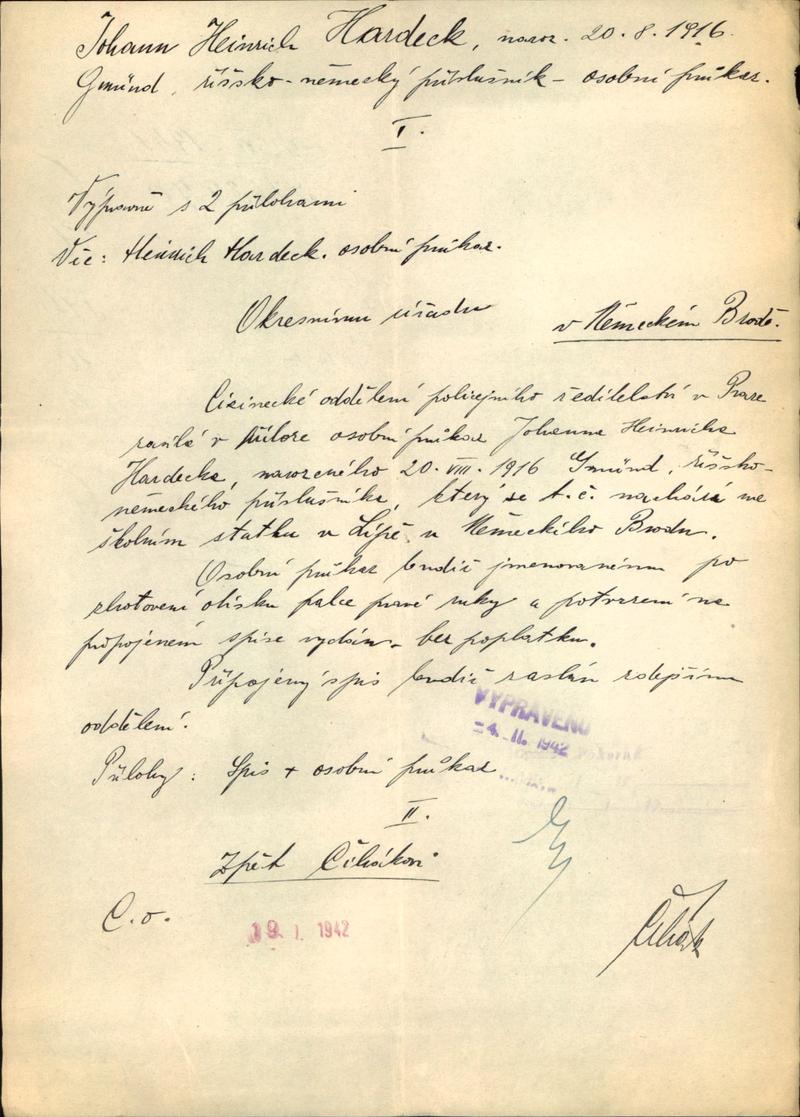 Johann Heinrich Hardeck, naroz. 20.8.1916.
Gmünd, říšsko-německý příslušník - osobní průkaz.
I.
Výpravně s 2 přílohami
Věc: Heinrich Hardeck. osobní průkaz.
Okresnímu úřadu
v Německém Brodě.
Cizinecké oddělení policejního ředitelství v Praze
zasílá v příloze osobní průkaz Johanna Heinricha
Hardecka, narozeného 20. VIII. 1916 Gmünd, říšsko-
německého příslušníka, který se t. č. nachází na
školním statku v Lípě u Německého Brodu.
Osobní průkaz budiž jmenovanému po
zhotovení otisku palce pravé ruky a potvrzení na
připojeném spise vydán - bez poplatku.
Připojený spis budiž zaslán zdejšímu
oddělení.
VYPRAVENO
-4. II. 1942
Přílohy: Spis + osobní průkaz
II.
Zpět Čihákovi
C. o.
19. I. 1942
Čihák